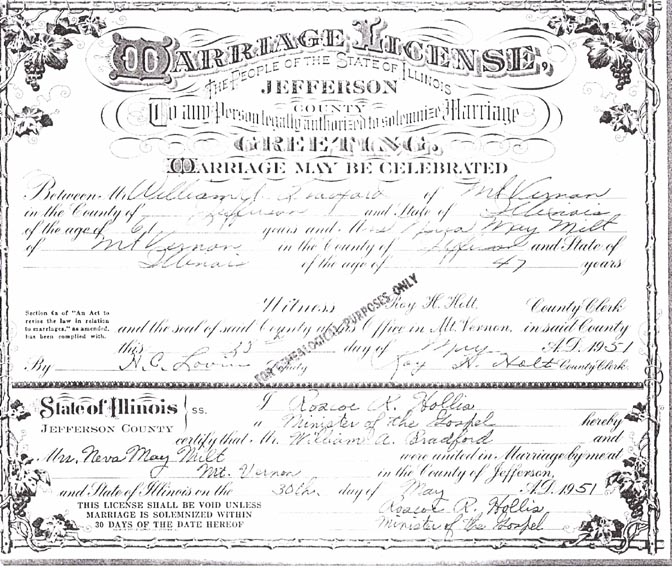 MARRIAGE LICENSE,
THE PEOPLE OF THE STATE OF ILLINOIS
JEFFERSON
COUNTY
To any Person legally authorized to solemnize Marriage
GREETING.
MARRIAGE MAY BE CELEBRATED
Between Mr. William A. Bradford of Mt Vernon
in the County of Jefferson and State of Illinois
of the age of years and Mrs Neva May Milt
of Mt Vernon in the County of Jefferson and State of
Illinois of the age of 47 years
Section 6a of "An Act to
revise the law in relation
to marriages," as amended,
has been complied with.
Witness Roy H. Holt County Clerk
and the seal of said County at his Office in Mt. Vernon, in said County
this day of A.D. 1951
By H.C. Deputy Roy H. Holt County Clerk
FOR GENEALOGICAL PURPOSES ONLY
State of Illinois } ss.
JEFFERSON COUNTY
I Roscoe R. Hollis
a Minister of the Gospel hereby
certify that Mr. William A. Bradford and
Mrs. Neva May Milt were united in Marriage by me at
Mt. Vernon in the County of Jefferson,
and State of Illinois on the 30th day of May A.D. 1951
THIS LICENSE SHALL BE VOID UNLESS
MARRIAGE IS SOLEMNIZED WITHIN
30 DAYS OF THE DATE HEREOF
Roscoe R. Hollis
Minister of the Gospel